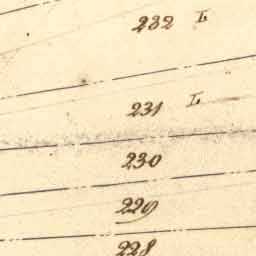 232 L
231 L
230
229
228